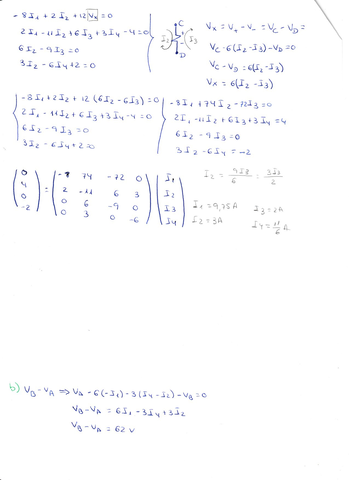 -8I1 + 2I2 + 12 Vx = 0
2I1 - 11I2 + 6I3 + 3I4 - 4 = 0
6I2 - 9I3 = 0
3I2 - 6I4 + 2 = 0
C
I2
I3
D
Vx = V+ - V- = VC - VD =
VC - 6(I2 - I3) - VD = 0
VC - VD = 6(I2 - I3)
Vx = 6(I2 - I3)
-8I1 + 2I2 + 12(6I2 - 6I3) = 0
2I1 - 11I2 + 6I3 + 3I4 - 4 = 0
6I2 - 9I3 = 0
3I2 - 6I4 + 2 = 0
-8I1 + 74I2 - 72I3 = 0
2I1 - 11I2 + 6I3 + 3I4 = 4
6I2 - 9I3 = 0
3I2 - 6I4 = -2
0 = -8 74 -72 0 I1
4 2 -11 6 3 I2
0 0 6 -9 0 I3
-2 0 3 0 -6 I4
I2 = 9I3/6 = 3I3/2
I1 = 9,75A I3 = 2A
I2 = 3A I4 = 11/6 A
b) VB - VA ⇒ VA - 6(-I1) - 3(I4 - I2) - VB = 0
VB - VA = 6I1 - 3I4 + 3I2
VB - VA = 62 V